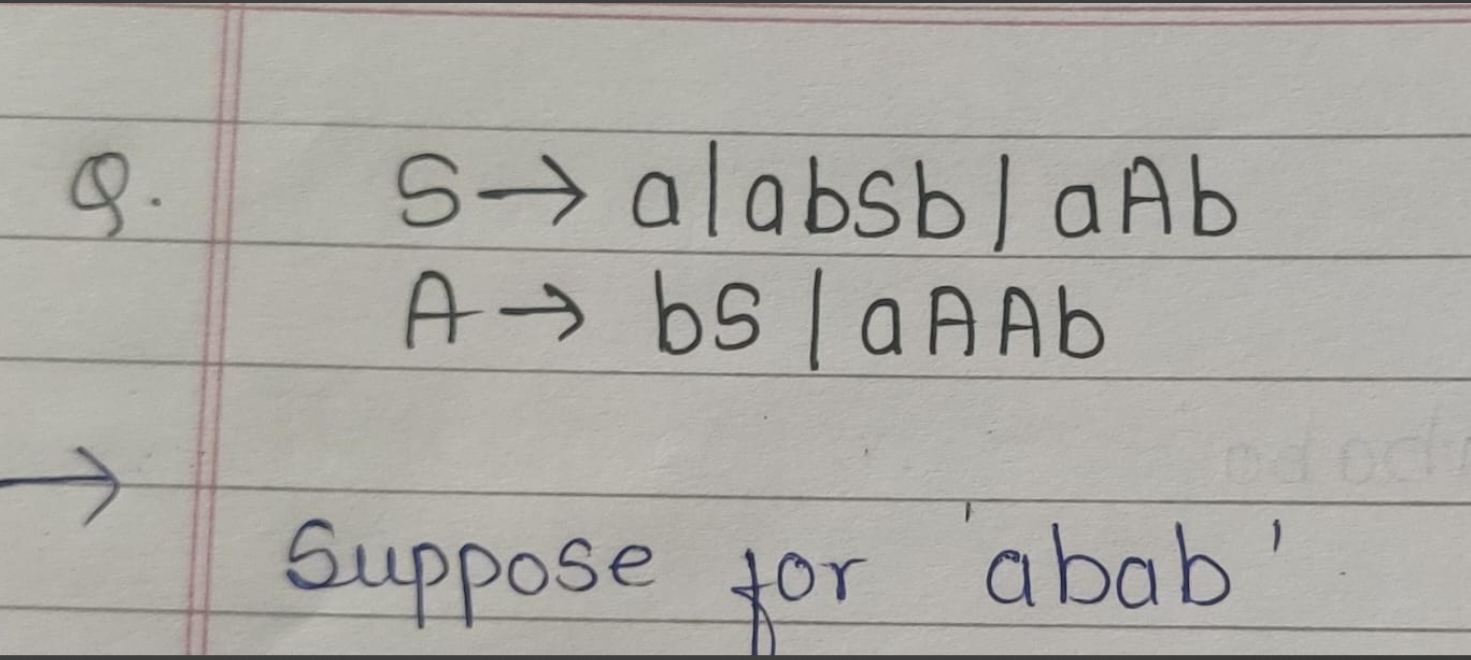 Q. S → a | absb | aAb
A → bS | aAAb
→
Suppose for 'abab'